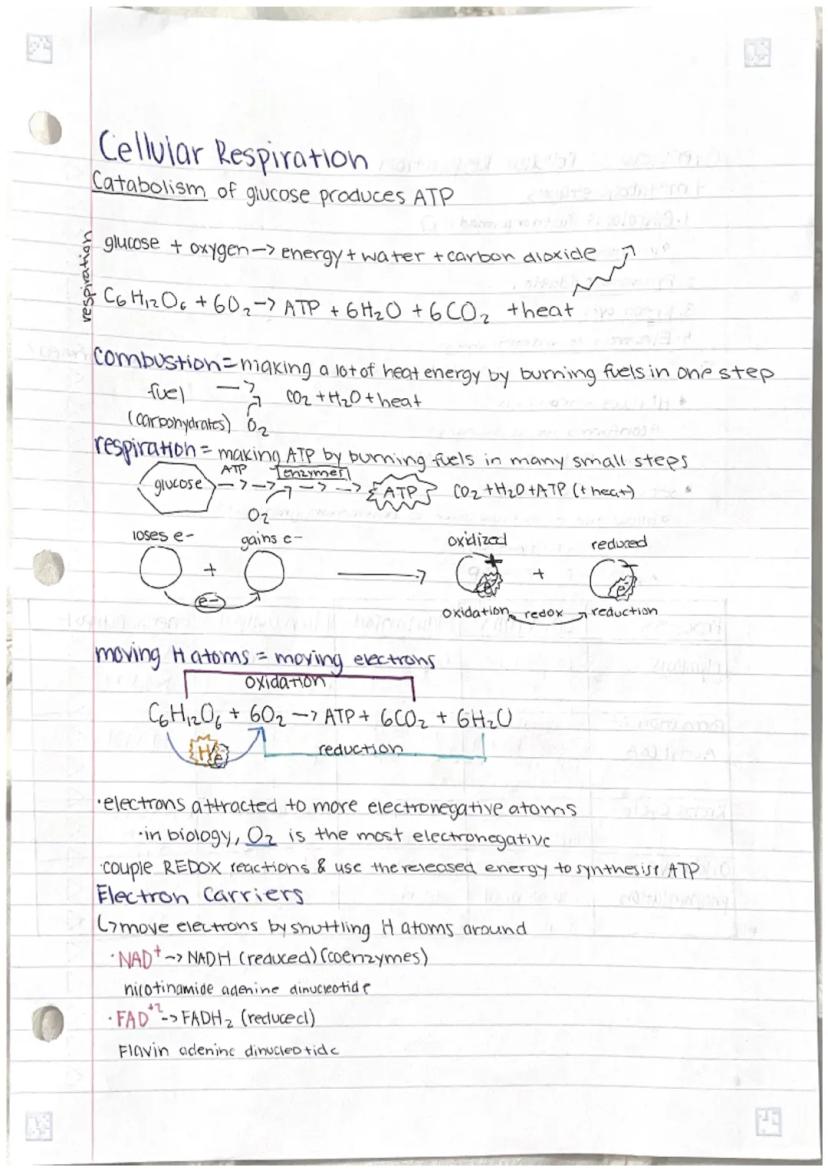 Cellular Respiration
Catabolism of glucose produces ATP
respiration
glucose + oxygen -> energy + water + carbon dioxide
C6H12O6 + 6O2 -> ATP + 6H2O + 6CO2 + heat
combustion = making a lot of heat energy by burning fuels in one step
fuel -> CO2 + H2O + heat
(carbohydrates) O2
respiration = making ATP by burning fuels in many small steps
ATP enzymes
glucose -> -> -> -> ATP CO2 + H2O + ATP (+ heat)
O2
loses e- gains e- oxidized reduced
+ → + + -
e- e- e-
oxidation redox reduction
moving H atoms = moving electrons
oxidation
C6H12O6 + 6O2 -> ATP + 6CO2 + 6H2O
H e- reduction
• electrons attracted to more electronegative atoms
• in biology, O2 is the most electronegative
• couple REDOX reactions & use the released energy to synthesise ATP
Electron Carriers
↳ move electrons by shuttling H atoms around
• NAD+ -> NADH (reduced) (coenzymes)
nicotinamide adenine dinucleotide
• FAD+2 -> FADH2 (reduced)
Flavin adenine dinucleotide